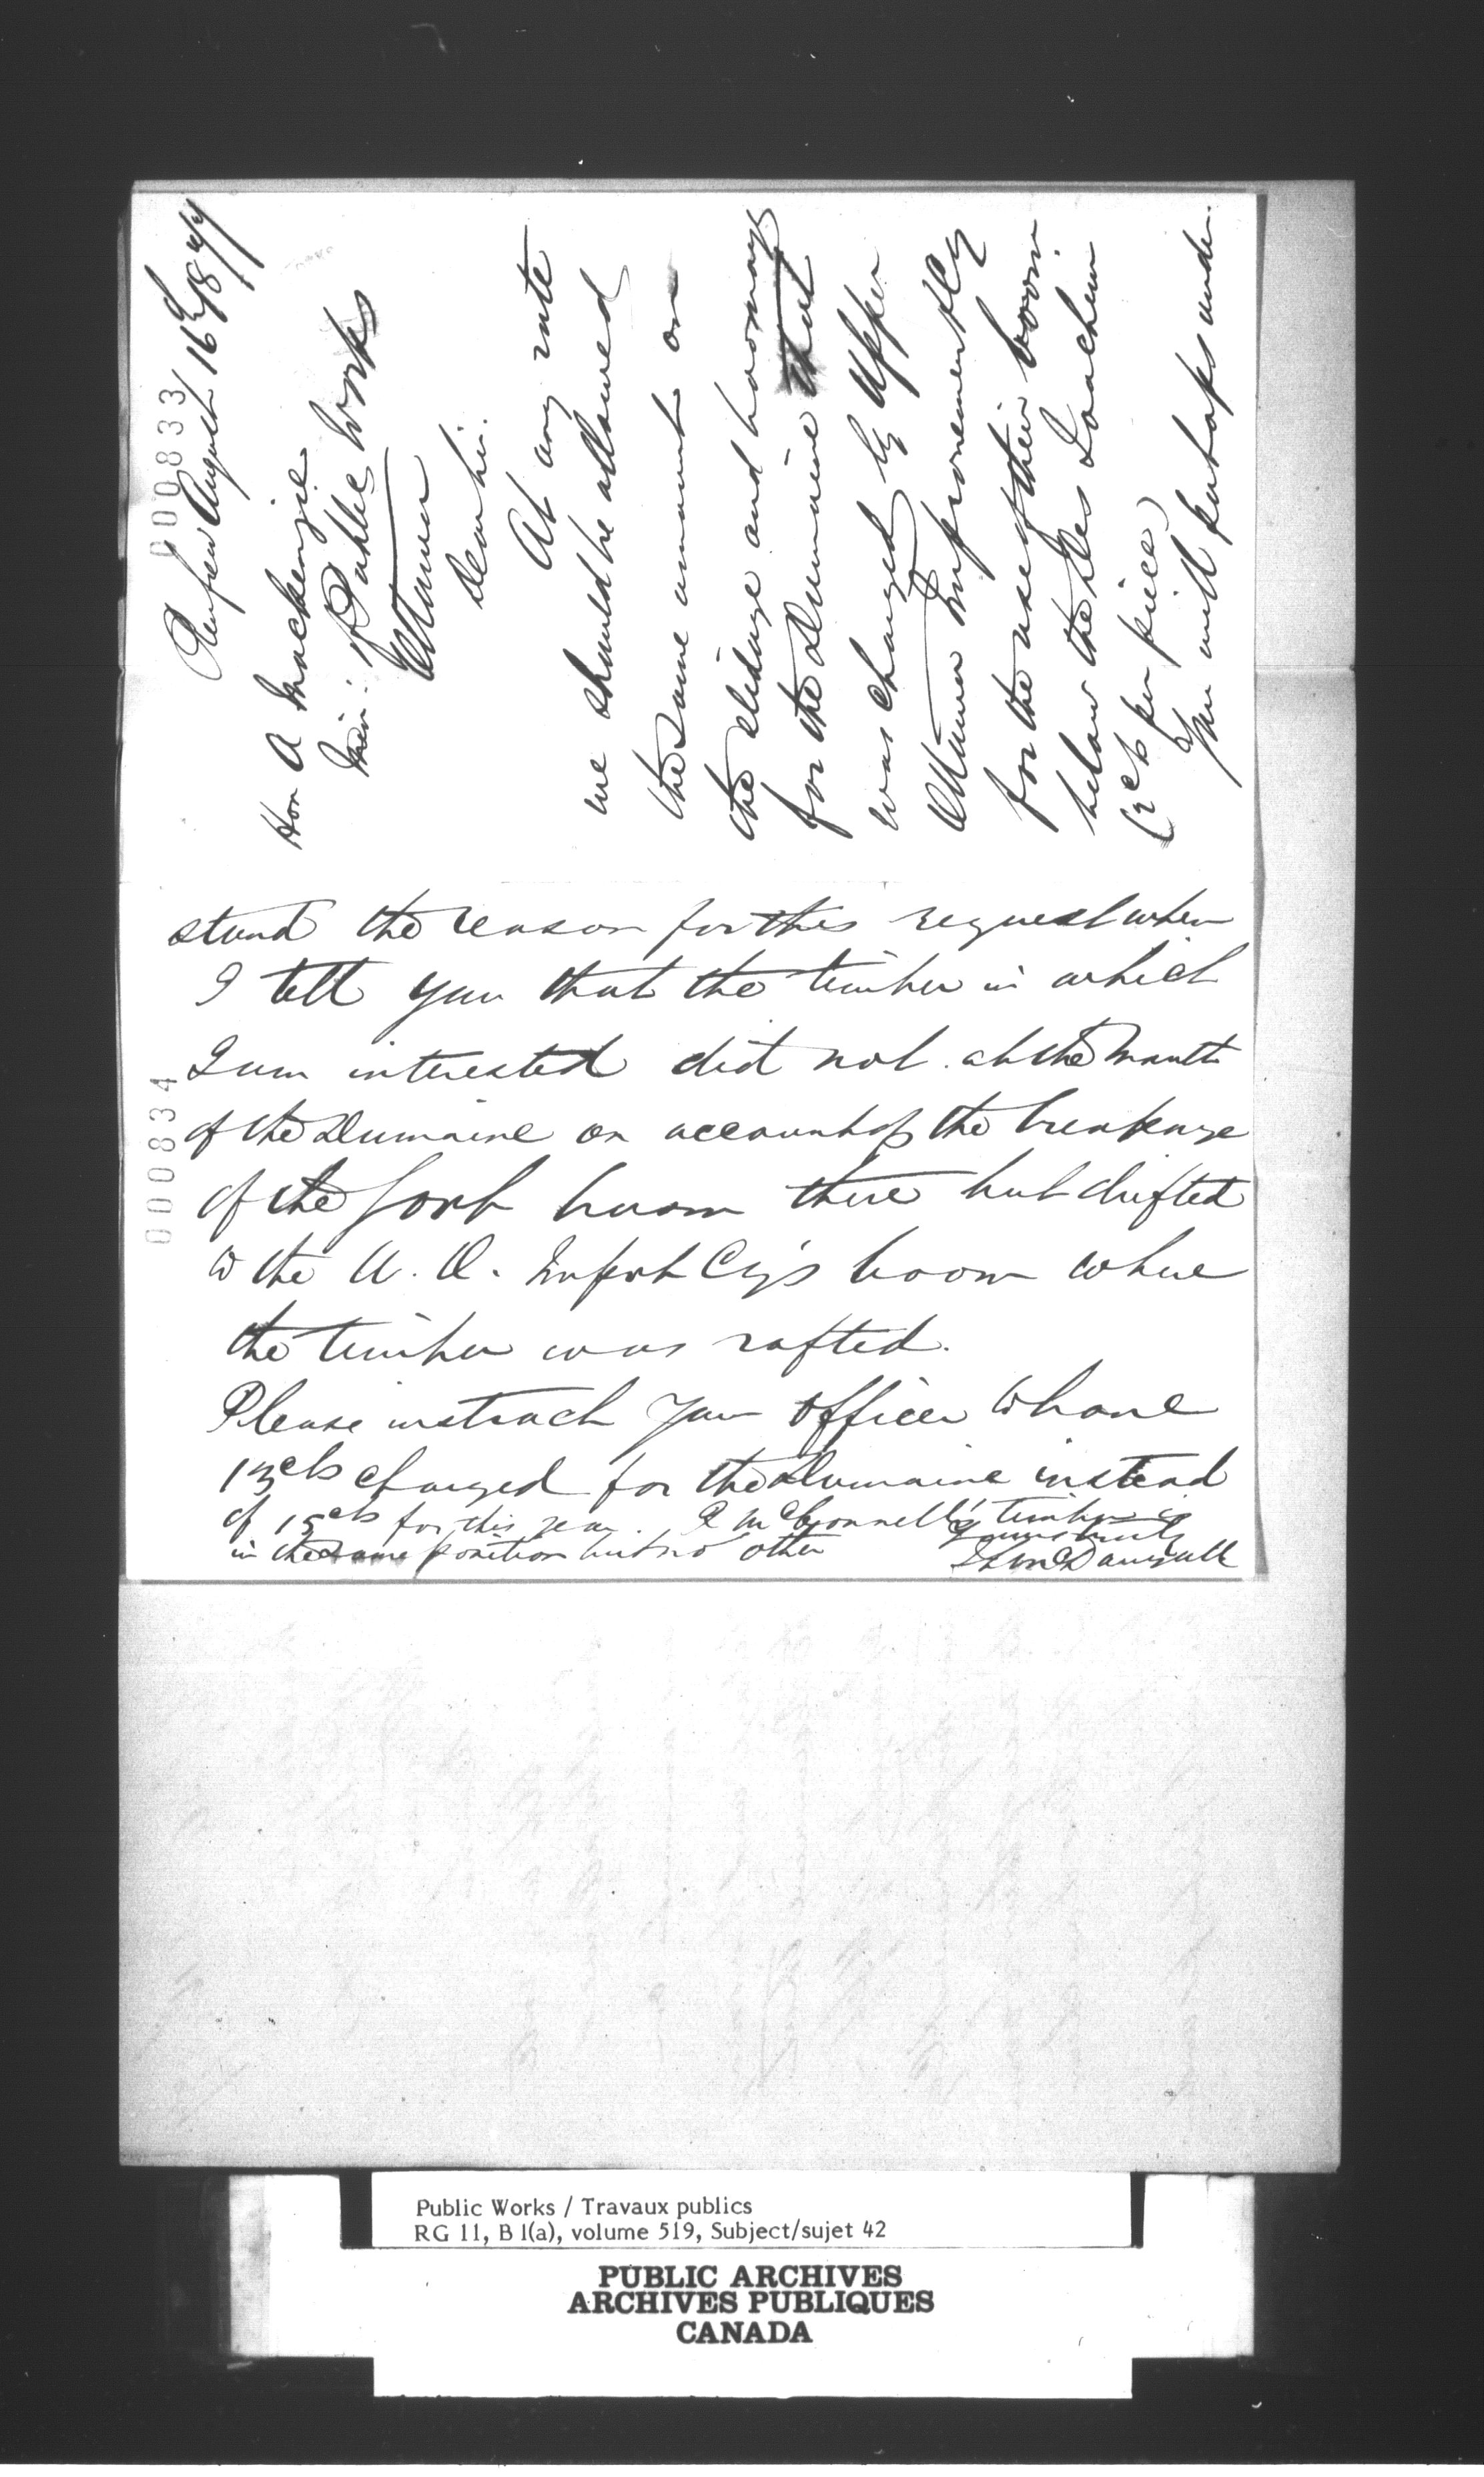 000833
Renfrew August 16th 1877
Hon A Mackenzie
Min: of Public Works
Ottawa
Dear Sir.
At any rate
we should be allowed
the same amount on
the slidage and boomage
for the Dumoine that
was charged by Upper
Ottawa Improvement Coy
for the use of their boom
below the Des Joachim
(2cts per piece)
You will perhaps under-
stand the reason for this request when
I tell you that the timber in which
I am interested did not at the Mouth
000834
of the Dumoine on account of the breakage
of the Govt boom there but drifted
to the U. O. Impvt Coy's boom where
the timber was rafted.
Please instruct your officer to have
13cts charged for the Dumoine instead
of 15cts for this year. R McConnell's timber is
in the same position but no other
Yours truly
McDougall
Public Works / Travaux publics
RG 11, B 1(a), volume 519, Subject/sujet 42
PUBLIC ARCHIVES
ARCHIVES PUBLIQUES
CANADA